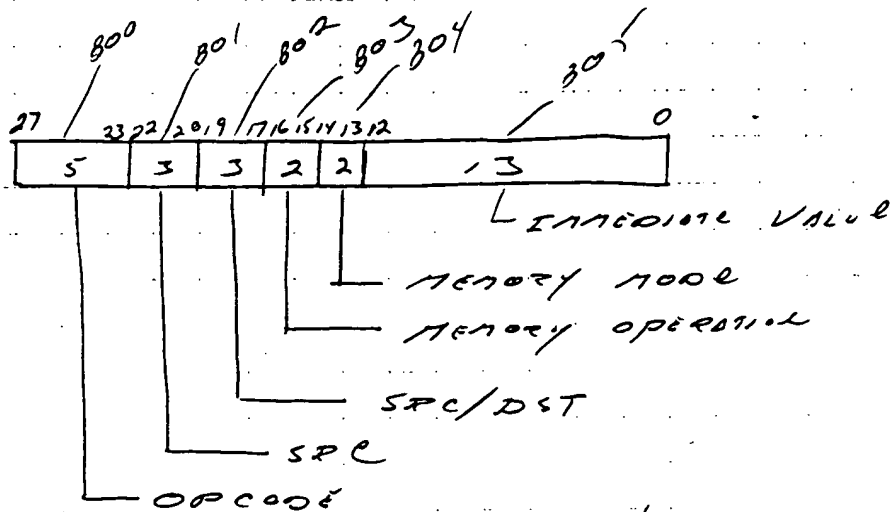 800 801 802 803 804 805
27 23 22 20 19 17 16 15 14 13 12 0
5 3 3 2 2 13
IMMEDIATE VALUE
MEMORY MODE
MEMORY OPERATION
SRC/DST
SRC
OPCODE